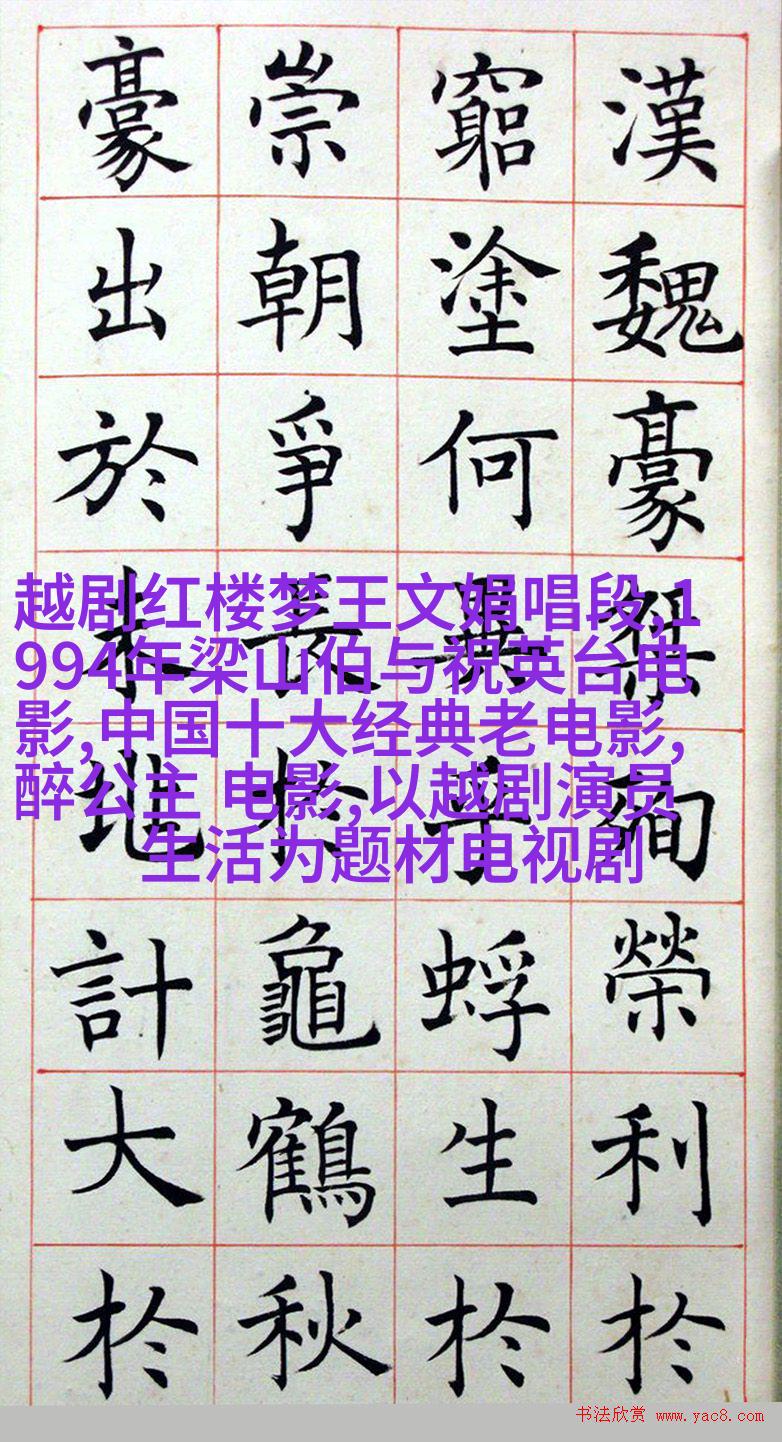 漢魏豪桀殉榮利於
窮塗何異乎蜉生於
崇朝爭長於龜鶴秋於
豪出於計大於
越剧红楼梦王文娟唱段,1
994年梁山伯与祝英台电
影,中国十大经典老电影,
醉公主 电影,以越剧演员
生活为题材电视剧
书法欣赏 www.yac8.com